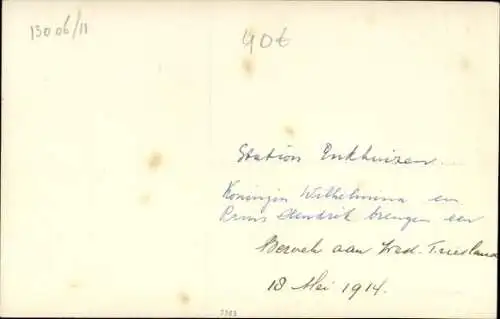 13006/11
40€
Station Enkhuizen
Koningin Wilhelmina en
Prins Hendrik brengen een
Bezoek aan West-Friesland
18 Mei 1914.